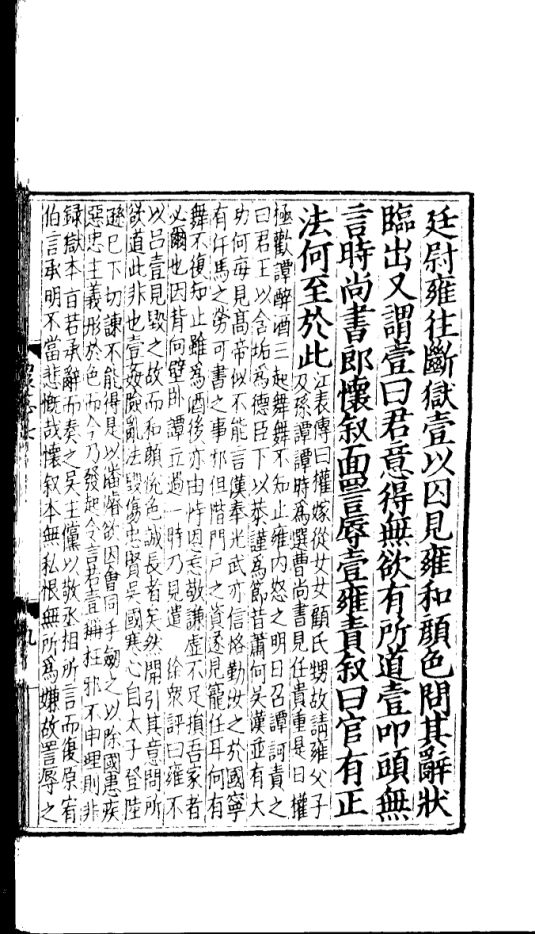 廷尉雍往斷獄壹以囚見雍和顔色問其辭狀
臨出又謂壹曰君意得無欲有所道壹叩頭無
言時尚書郎懷叙面詈辱壹雍責叙曰官有正
法何至於此
江表傳曰權嫁從女女顧氏甥故請雍父子
及孫譚譚時爲選曹尚書見任貴重是日權
極歡譚醉酒三起舞舞不知止雍内怒之明日召譚訶責之
曰君王以含垢爲德臣下以恭謹爲節昔蕭何吴漢並有大
功何每見高帝似不能言漢奉光武亦信恪勤汝之於國寧
有汗馬之勞可書之事邪但階門戶之資遂見寵任耳何有
舞不復知止雖爲酒後亦由恃恩忘敬謙虛不足損吾家者
必爾也因背向壁卧譚立過一時乃見遣 徐衆評曰雍不
以吕壹見毁之故而和顔恱色誠長者矣然開引其意問所
欲道此非也壹姦險亂法毁傷忠賢吴國寒心自太子登陸
遜巳下切諫不能得是以潘濬欲因會同手劒之以除國患疾
惡忠主義形於色而今乃發起令言若壹稱枉邪不申理則非
録獄本旨若承辭而奏之吴主儻以敬丞相所言而復原宥
伯言承明不當悲慨哉懷叙本無私恨無所爲嫌故詈辱之
九